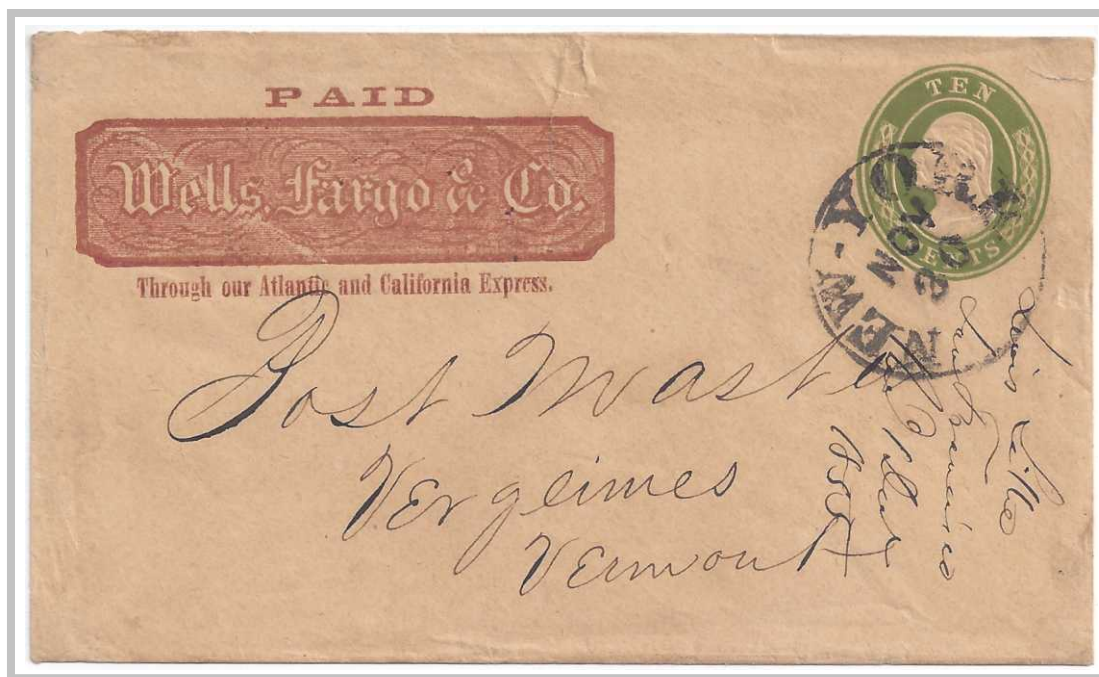 PAID
Wells, Fargo & Co.
Through our Atlantic and California Express.
TEN
CENTS
NEW-YORK
NOV
Post Master
Vergeimes
Vermont
San Francisco